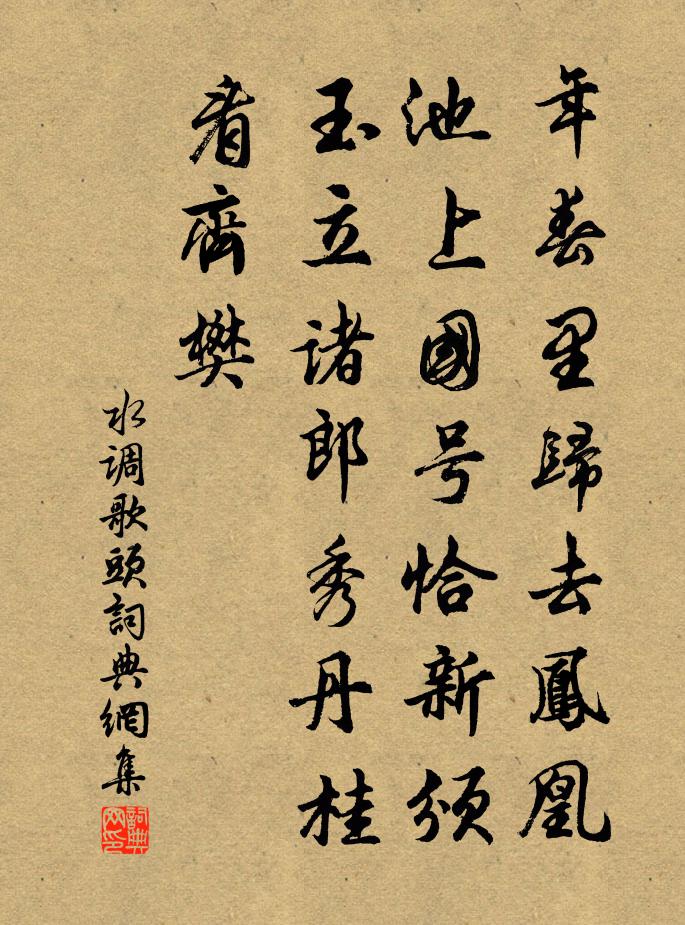 年春里歸去鳳凰
池上國号恰新頒
玉立諸郎秀丹桂
看齊樊
水調歌頭詞典網集
詞典网印